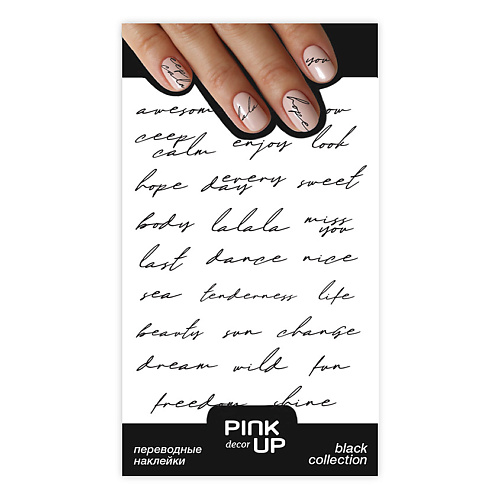 ceep calm
lala
hope
you
awesom ow
ceep calm enjoy look
hope every day sweet
body lalala miss you
last dance nice
sea tenderness life
beauty sun change
dream wild fun
freedom shine
PINK UP
decor
переводные наклейки
black collection